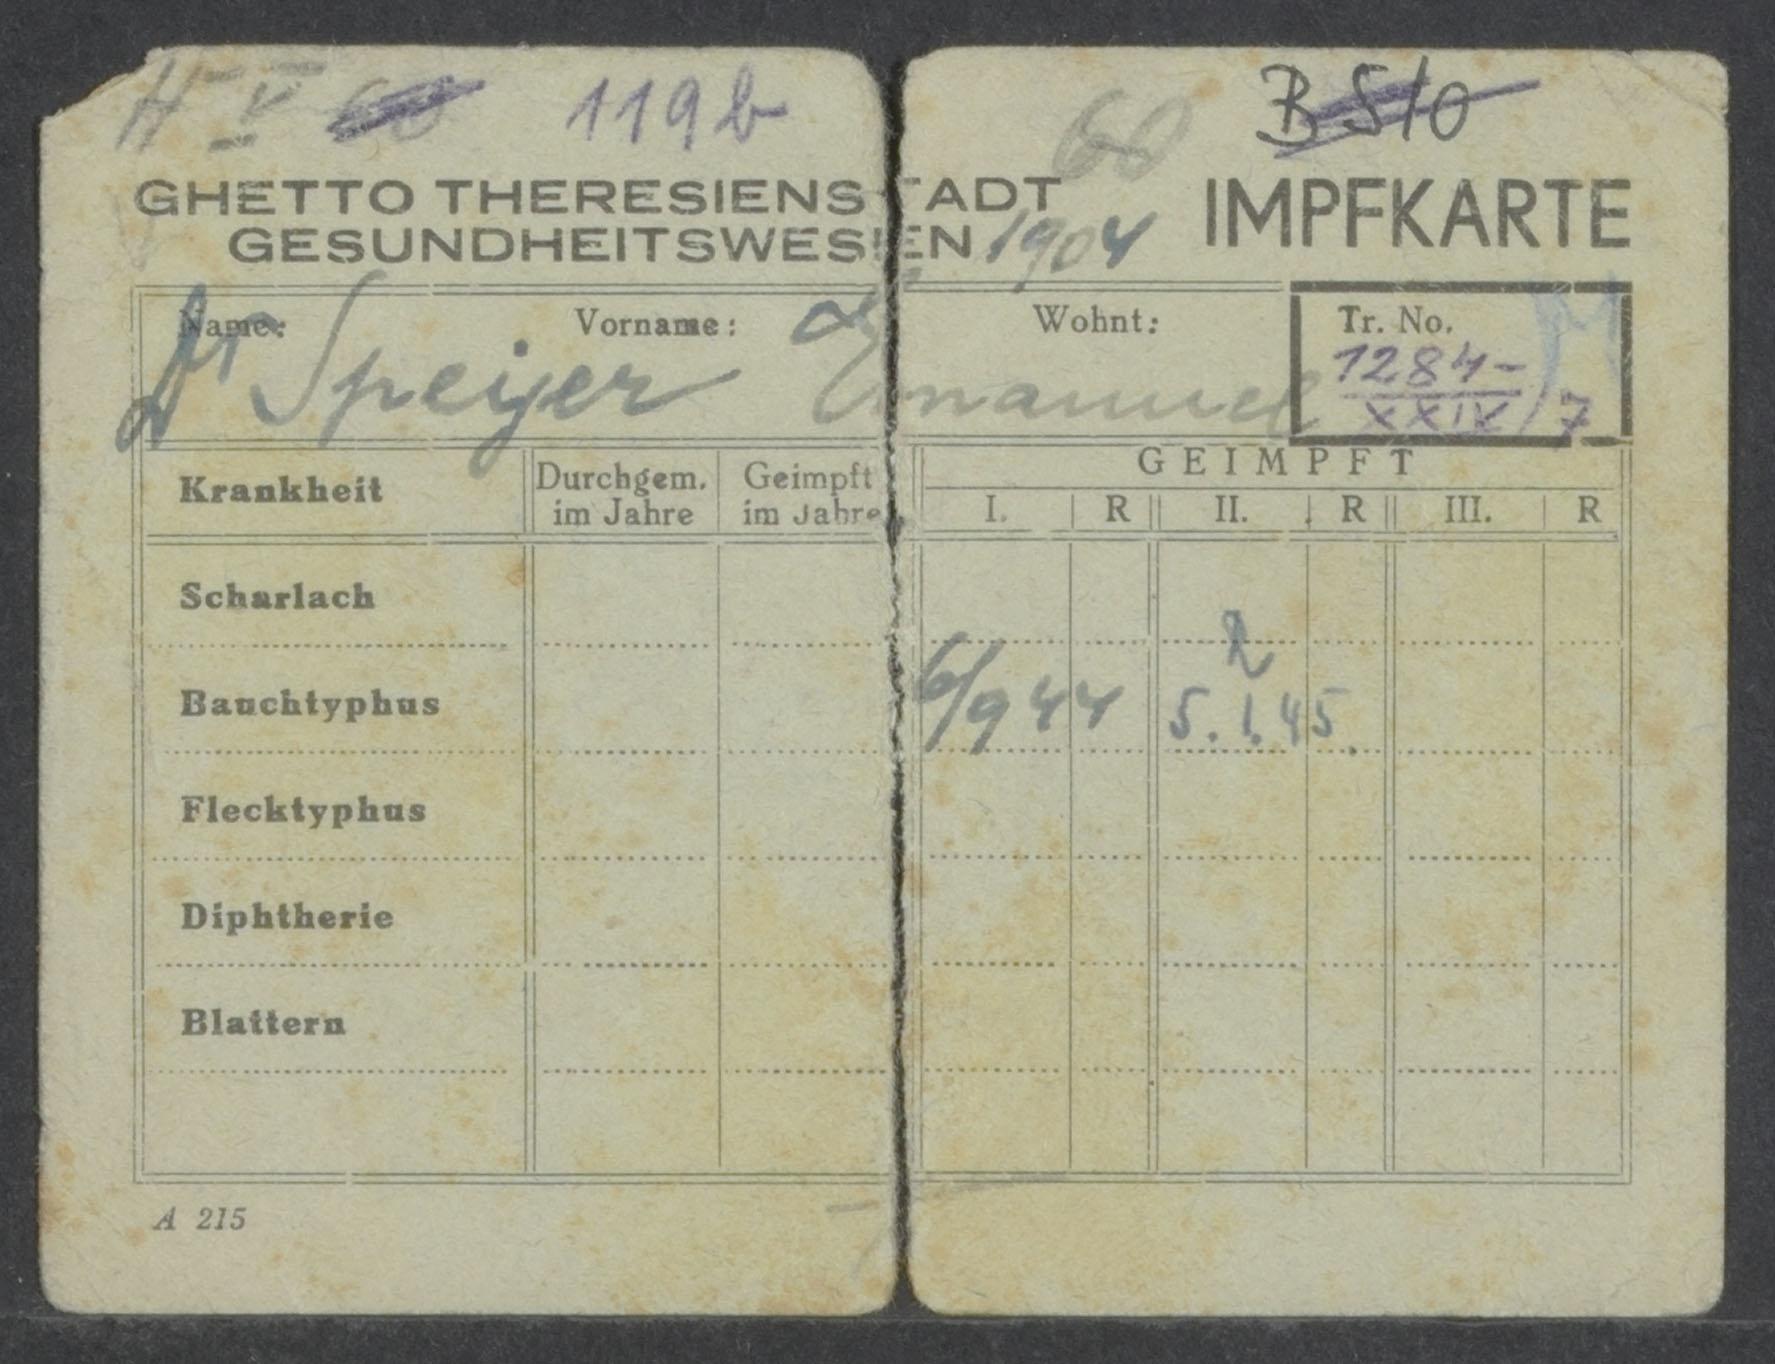 H V 60 119 b 60 B S 10
GHETTO THERESIENSTADT
GESUNDHEITSWESEN 1904
IMPFKARTE
Name: Vorname: Wohnt:
Dr Speijer Emanuel
Tr. No.
1284-
XXIV/7
Krankheit
Durchgem.
im Jahre
Geimpft
im Jahre
GEIMPFT
I. R II. R III. R
Scharlach
Bauchtyphus 6/9 44 5.1.45.
Flecktyphus
Diphtherie
Blattern
A 215